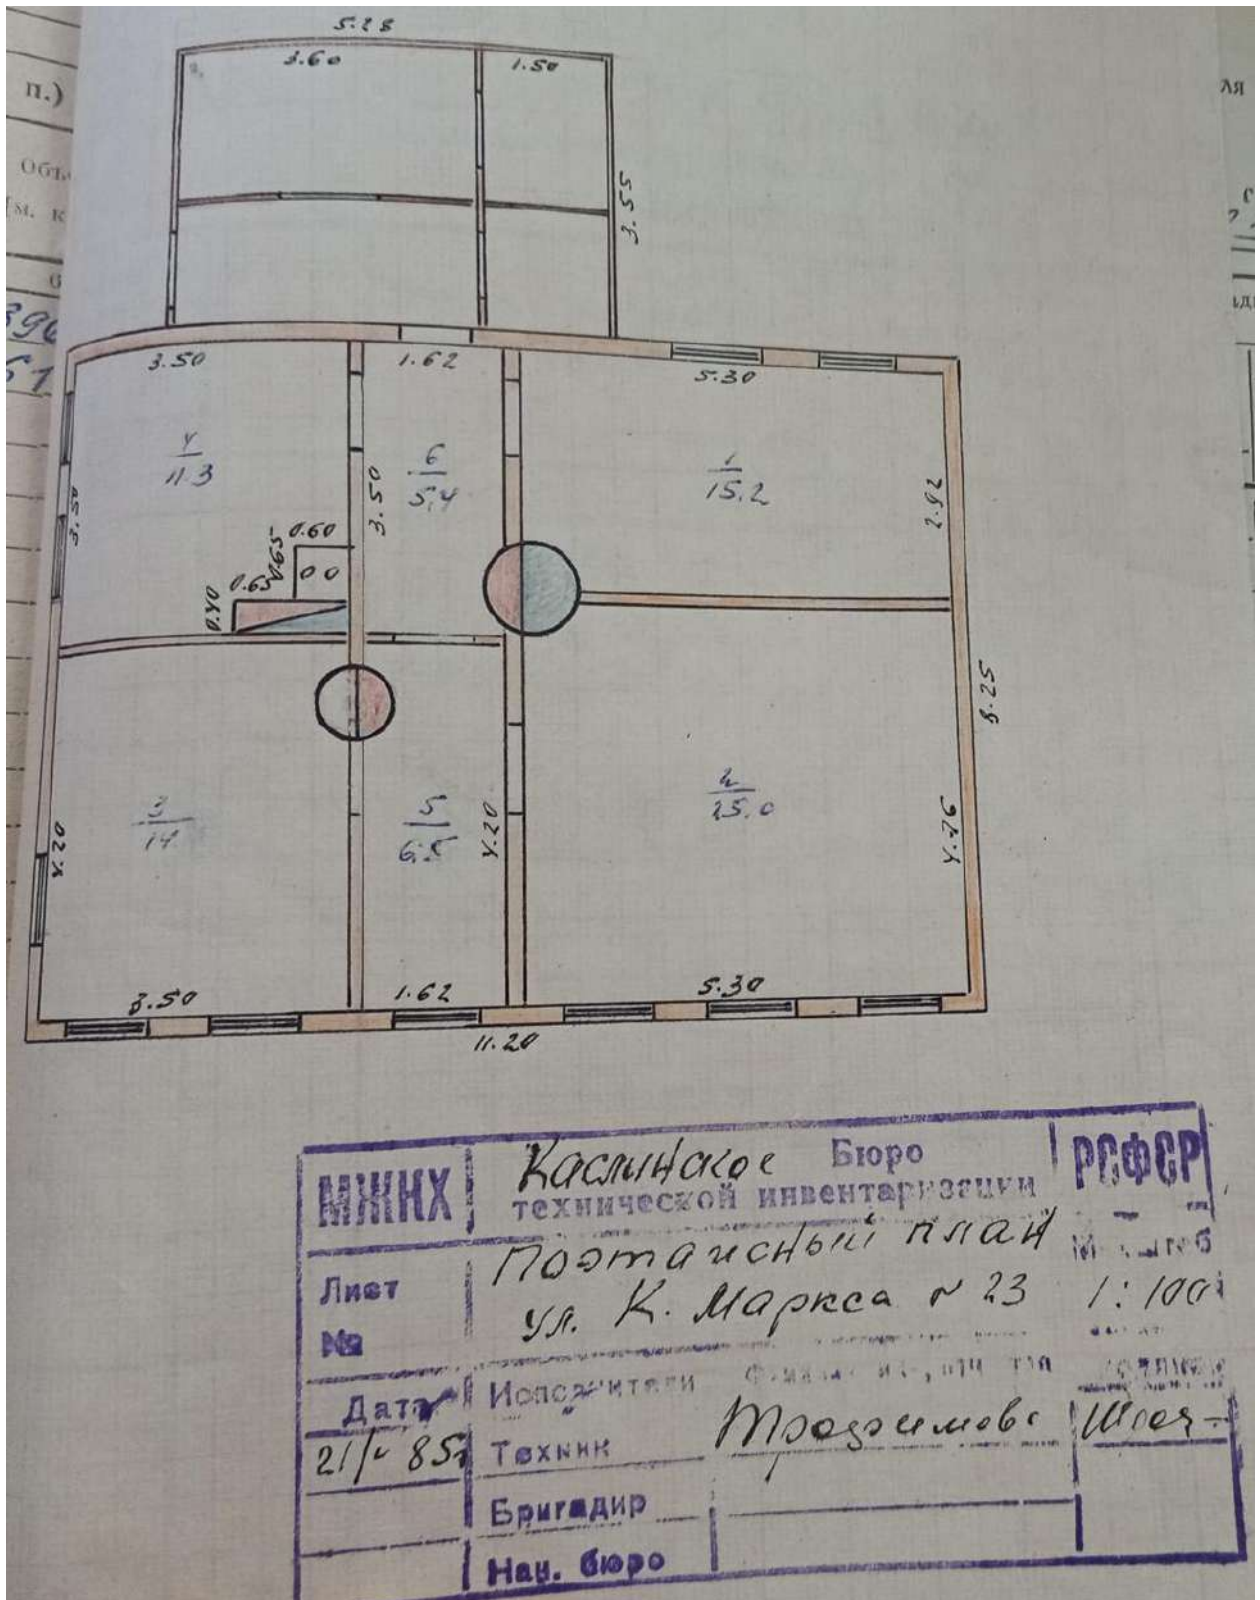 5.28
3.60
1.50
п.)
ля
3.55
3.50
1.62
5.30
4
11.3
6
5,4
1
15.2
3.50
3.50
2.92
0.60
0.65
0.65
0.40
00
8.25
3
14
5
6.5
2
25.0
4.20
4.20
3.50
1.62
5.30
11.20
МЖКХ
Каслинское Бюро
технической инвентаризации
РСФСР
Лист
№
Поэтажный план
ул. К. Маркса № 23
1:100
Дата
Исполнители
Техник
Бригадир
Нач. бюро